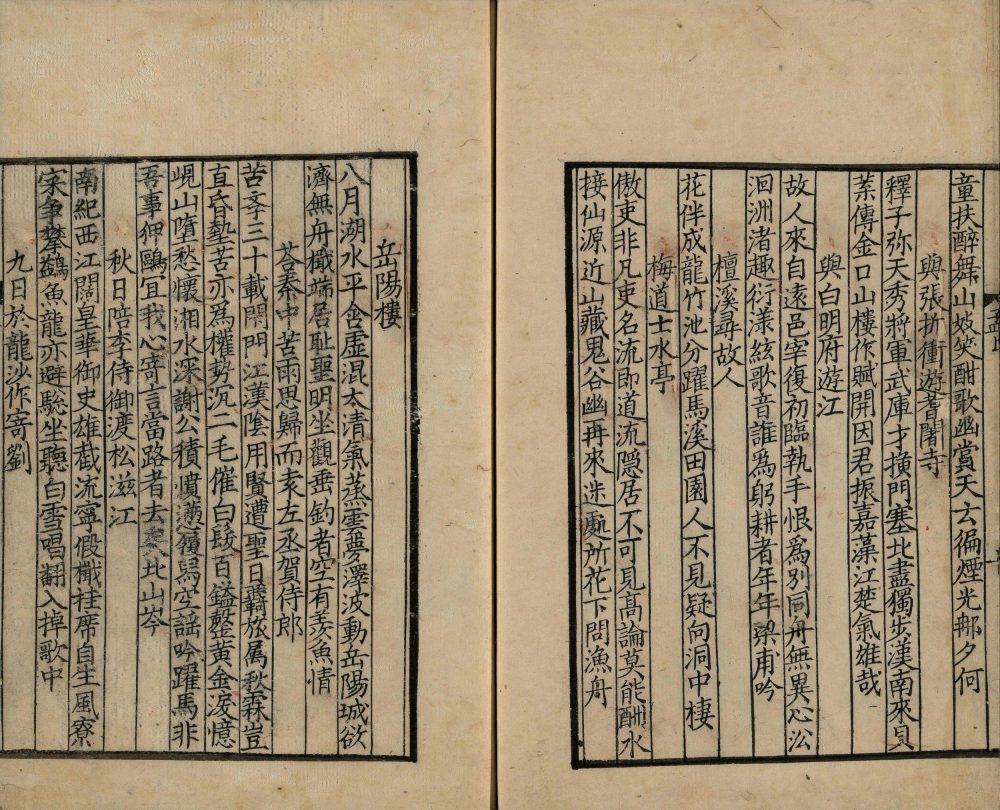 童扶醉舞山妓笑酣歌幽賞天玄徧煙光那夕何
與張折衝遊耆闍寺
釋子弥天秀將軍武庫才撗門塞北盡獨步漢南來貝
葉傳金口山樓作賦開因君振嘉藻江楚氣雄哉
與白明府遊江
故人來自遠邑宰復初臨執手恨爲別同舟無異心沿
洄洲渚趣衍漾絃歌音誰爲躬耕者年年梁甫吟
檀溪尋故人
花伴成龍竹池分躍馬溪田園人不見疑向洞中棲
梅道士水亭
傲吏非凡吏名流即道流隱居不可見髙論莫能酬水
接仙源近山藏鬼谷幽再來迷處所花下問漁舟
岳陽樓
八月湖水平含虛混太清氣蒸雲夢澤波動岳陽城欲
濟無舟檝端居耻聖明坐觀垂釣者空有羡魚情
荅秦中苦雨思歸而袁左丞賀侍郎
苦辛三十載閉門江漢陰用賢遭聖日羇旅属秋霖豈
直昏墊苦亦為權勢沉二毛催白髮百鎰罄黄金淚憶
峴山墮愁懷湘水深謝公積憤懣履舄空謡吟躍馬非
吾事狎鷗宜我心寄言當路者去矣北山岑
秋日陪李侍御渡松滋江
南紀西江闊皇華御史雄截流寧假檝挂席自生風寮
寀争攀鷁魚龍亦避驄坐聽白雪唱翻入掉歌中
九日於龍沙作寄劉